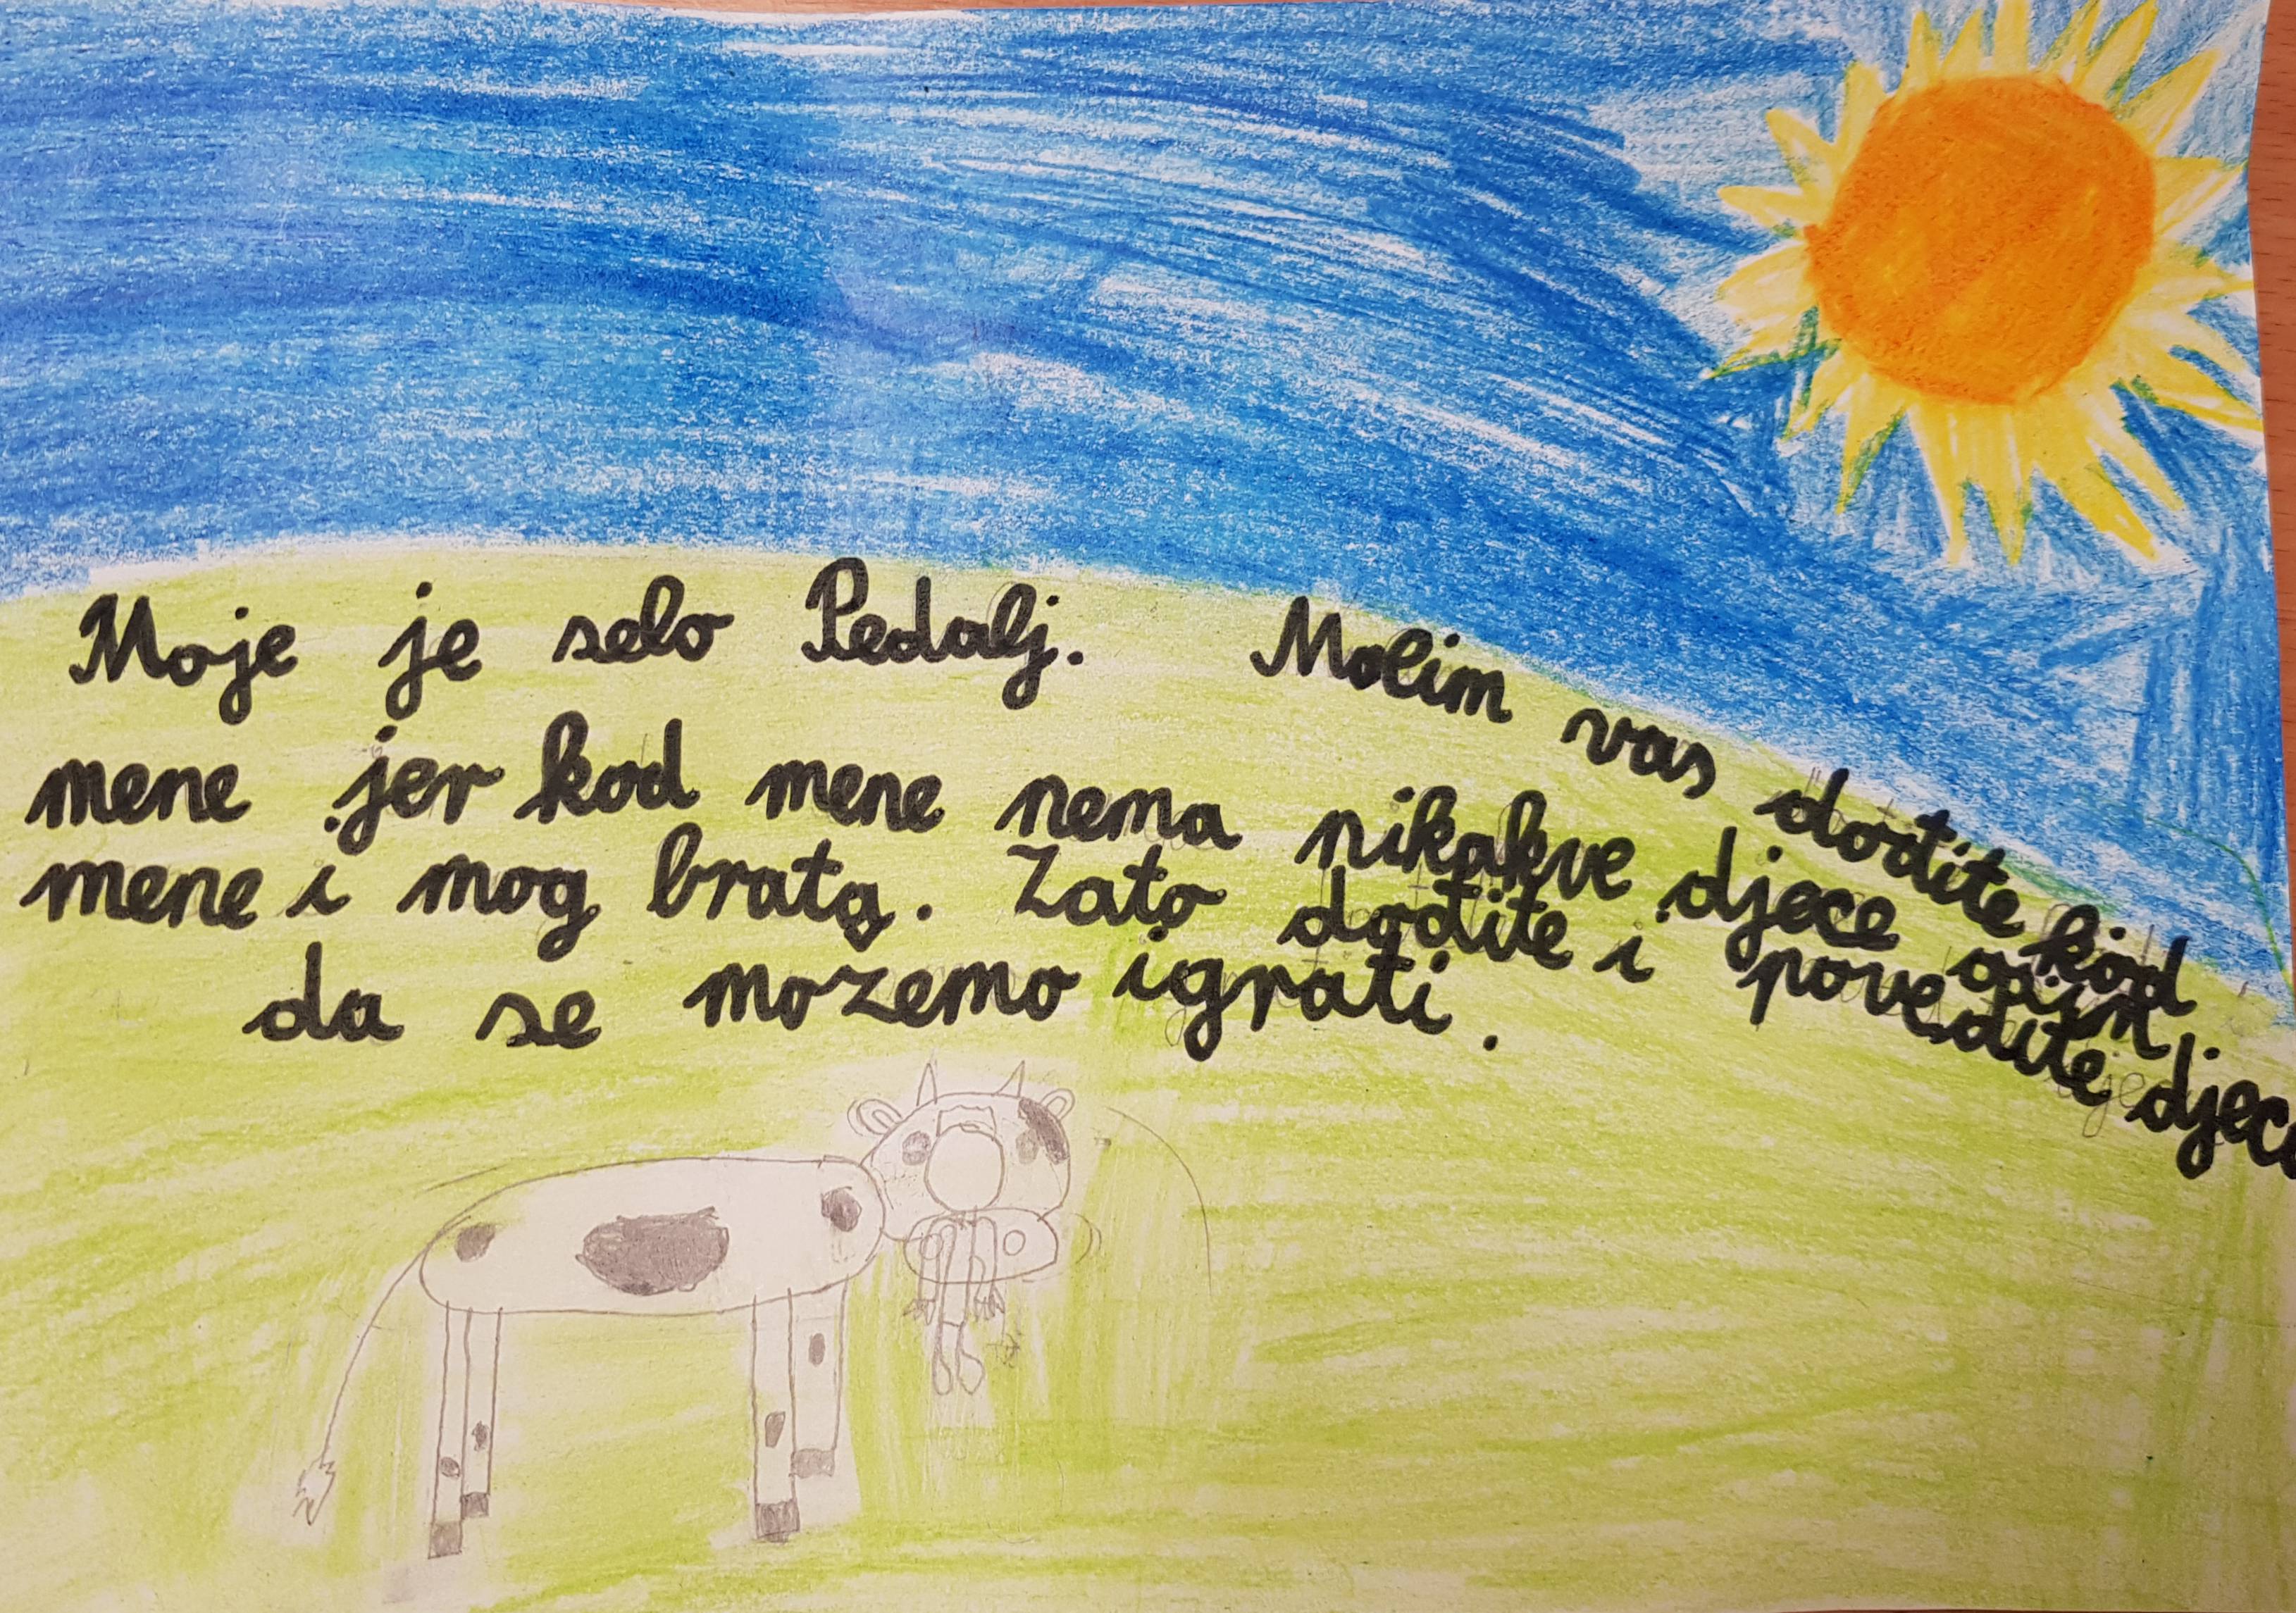 Moje je selo Pedalj. Molim vas dođite kod
mene jer kod mene nema nikakve djece osim
mene i mog brata. Zato dođite i povedite djecu
da se možemo igrati.